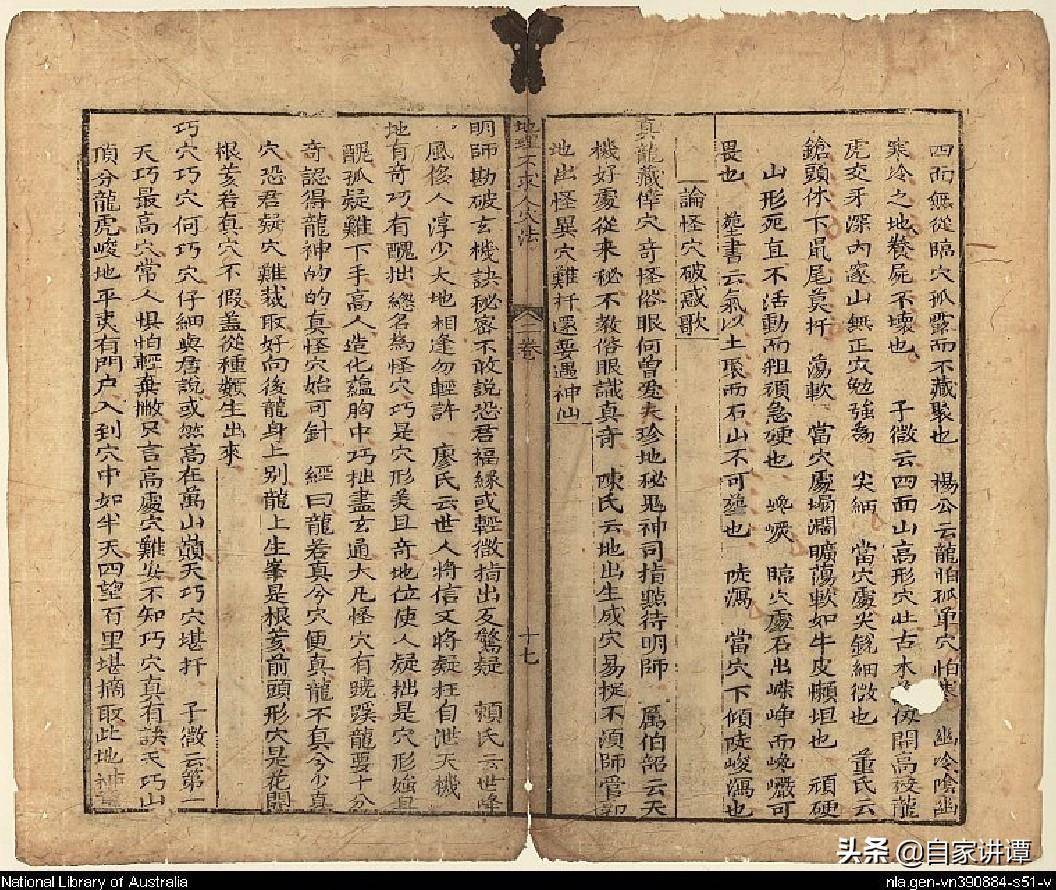 四面無從臨穴孤露而不藏聚也　楊公云龍怕孤單穴怕寒　幽冷陰幽
寒冷之地養屍不壞也　子微云四面山高形穴壯古木
開高校龍
虎交牙深內邃山無正穴勉強為　尖細　當穴處尖銳細微也　董氏云
鎗頭休下鼠尾莫扦　蕩軟　當穴處塌濶曠蕩軟如牛皮懶坦也　頑硬
山形死直不活動而粗頑急硬也　巉巖　臨穴處石出崢嶸而巉巖可
畏也　塟書云氣以土聚而石山不可塟也　陡瀉　當穴下傾陡峻瀉也
論怪穴破惑歌
真龍藏倖穴奇怪俗眼何曾愛天珍地秘鬼神司指點待明師　厲伯韶云天
機好處從來秘不教俗眼識真奇　陳氏云地出生成穴易扦不須師管郭
地出怪異穴難扦還要遇神仙
地理不求人穴法　二卷　十七
明師勘破玄機訣秘密不敢說恐君福緣或輕微指出反驚疑　賴氏云世降
風俗人淳少大地相逢勿輕許　廖氏云世人將信又將疑枉自泄天機
地有奇巧有醜拙總名為怪穴巧是穴形美且奇地位使人疑拙是穴形強且
醜孤疑難下手高人造化蘊胸中巧拙盡玄通大凡怪穴有蹺蹊龍要十分
奇認得龍神的的真怪穴始可針　經曰龍若真兮穴便真龍不真兮少真
穴恐君疑穴難裁取好向後龍身上别龍上生峯是根荄前頭形穴是花開
根荄若真穴不假盖從種類生出來
巧穴巧穴何巧穴仔細與君說或然高在萬山巔天巧穴堪扦　子微云第一
天巧最高穴常人惧怕輕棄撇只言高處穴難安不知巧穴真有訣天巧山
頂分龍虎峻地平夷有門户入到穴中如半天四望百里堪摘取此地神
National Library of Australia
nla.gen-vn390884-s51-v
头条 @自家讲谭